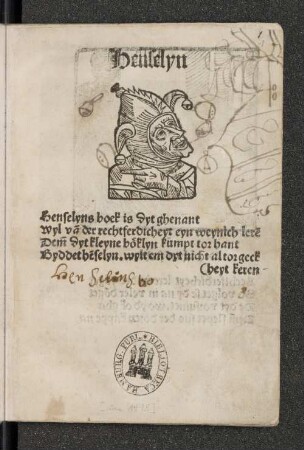 Henselyn
Henselyns boek is dyt ghenant
Wyl vā der rechtferdicheyt eyn weynich lerē
Dem dyt kleyne böklyn kumpt tor hant
Byddet hēselyn, wylt em dyt nicht al tor geck
(heyt keren
Hen
HAMBURG. PUBL. BIBLIOTHECA